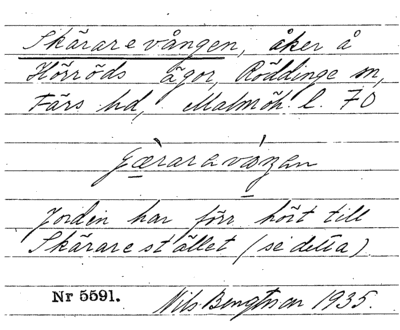 Skärarevången, åker å
Hörröds ägor, Röddinge sn,
Färs hd, Malmöh. l. 70
Jorden har förr hört till
Skärarestället (se detta).
Nr 5591. Nils Bengtsson 1935.